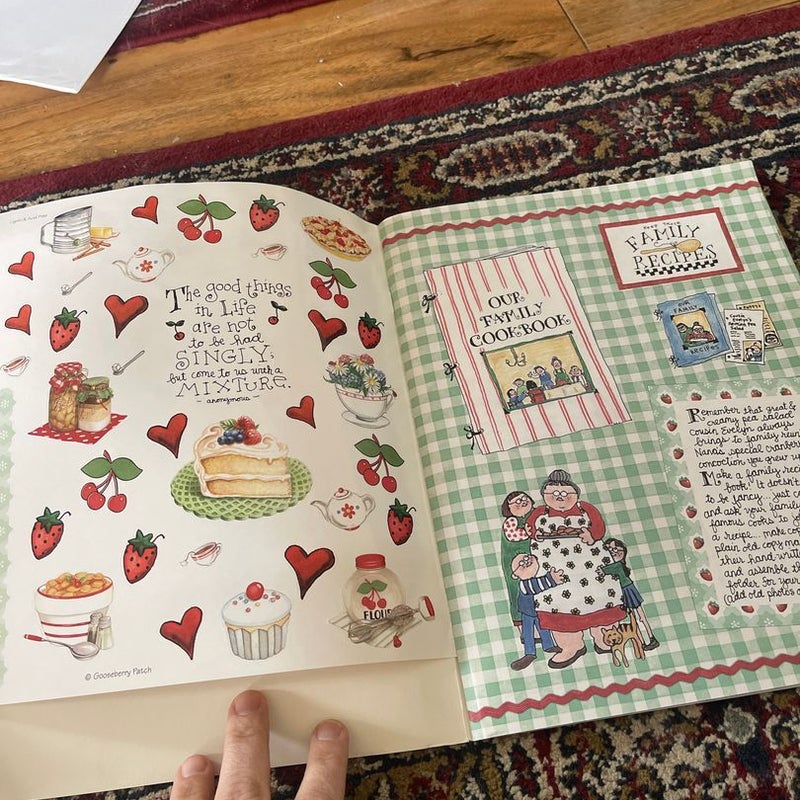 The good things
in Life
are not
to be had
SINGLY,
but come to us with a
MIXTURE.
- anonymous -
FLOUR
© Gooseberry Patch
OUR
FAMILY
COOKBOOK
KEEP THESE
FAMILY
RECIPES
OUR
FAMILY
RECIPES
Cousin
Evelyn's
Pea
Salad
Remember that great &
creamy pea salad
Cousin Evelyn always
brings to family reun
Nana's special cranber
concoction you grew u
Make a family reci
book! It doesn't
to be fancy...just c
and ask your family
famous cooks to
a recipe...make cop
plain old copy ma
their hand-writt
and assemble th
folder for your
(add old photos